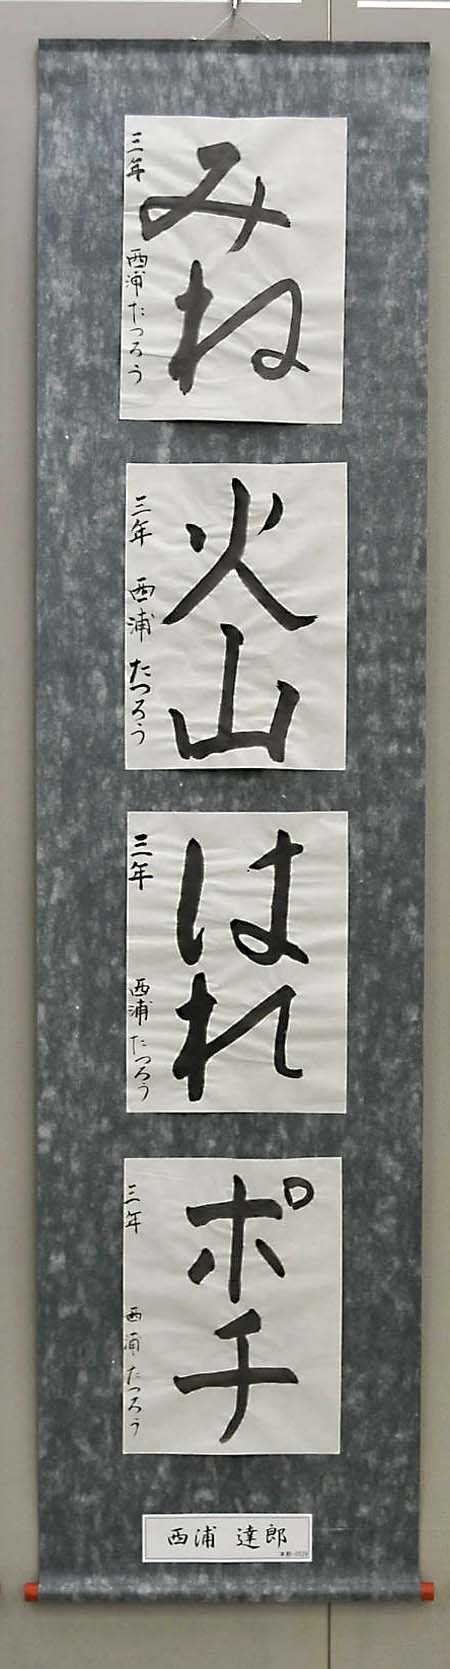 みね
三年 西浦たつろう
火山
三年 西浦 たつろう
はれ
三年 西浦 たつろう
ポチ
三年 西浦 たつろう
西浦 達郎